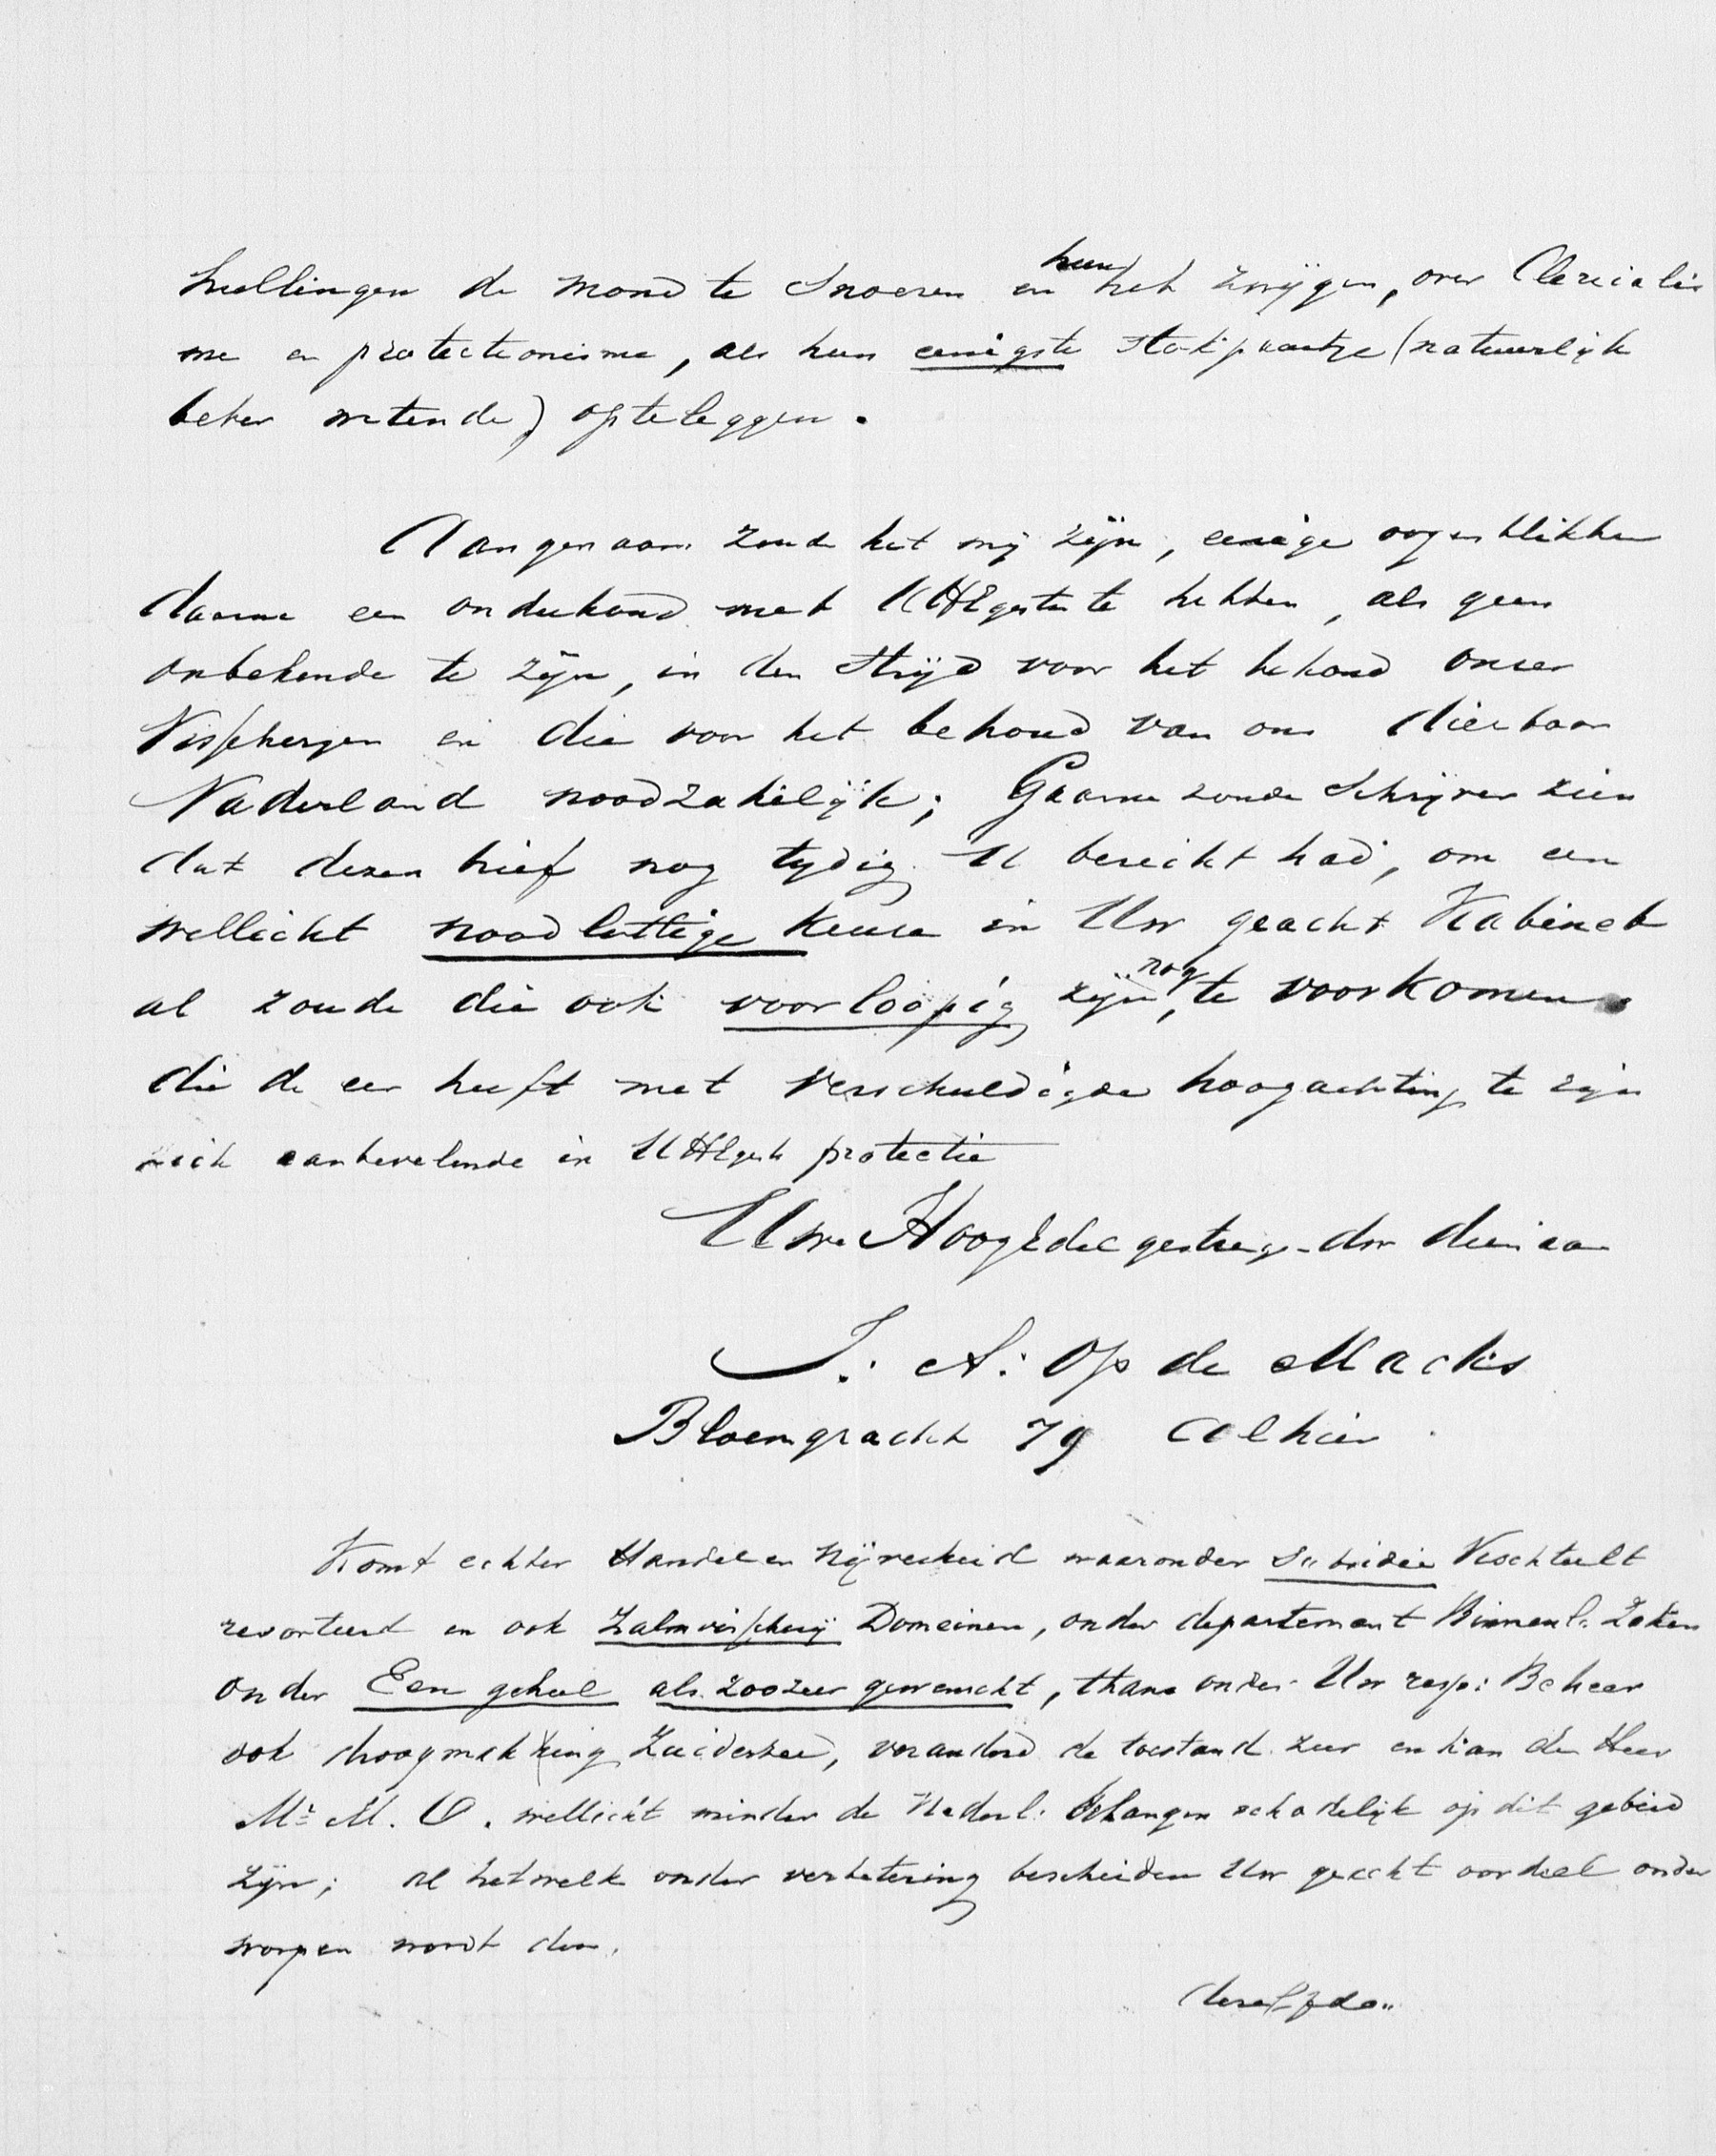 hullingen de mond te Snoeren en hun het zwijgen, over Clericalis
me en protectionisme, als hun eenigste Stokpaartje (natuurlijk
beter wetende) opteleggen.
Aangenaam zoude het mij zijn, eenige oogenblikken
daarna een onderhoud met UHEgestr te hebben, als geen
onbekende te zijn, in den Strijd voor het behoud onzer
Visscherijen en die voor het behoud van ons dierbaar
Vaderland noodzakelijk; Gaarne zoude Schrijver zien
dat dezen brief nog tydig U bereikt had, om een
wellicht noodlottige keuze in Uw geacht Kabinet
al zoude die ook voorloopig zijn, nog te voorkomen.
die de eer heeft met verschuldigde hoogachting te zijn
zich aanbevelende in UHEgestr protectie
Uw HoogEdelgestreng. dw dienaar
J. A. Op de Macks
Bloemgracht 79 Alhier.
Komt echter Handel en Nijverheid waaronder Subsidie Vischteelt
resorteert en ook Zalmvisscherij Domeinen, onder departement Binnenl. Zaken
onder Een geheel als zoozeer gewenscht, thans onder Uw resp: Beheer
ook droogmaking Zuiderzee, veranderd de toestand zeer en kan de Heer
Mr M. O. wellicht minder de Nederl: Belangen schadelijk op dit gebied
zijn; Al hetwelk onder verbetering bescheiden Uw geacht oordeel onder
worpen wordt door.
dezelfde..